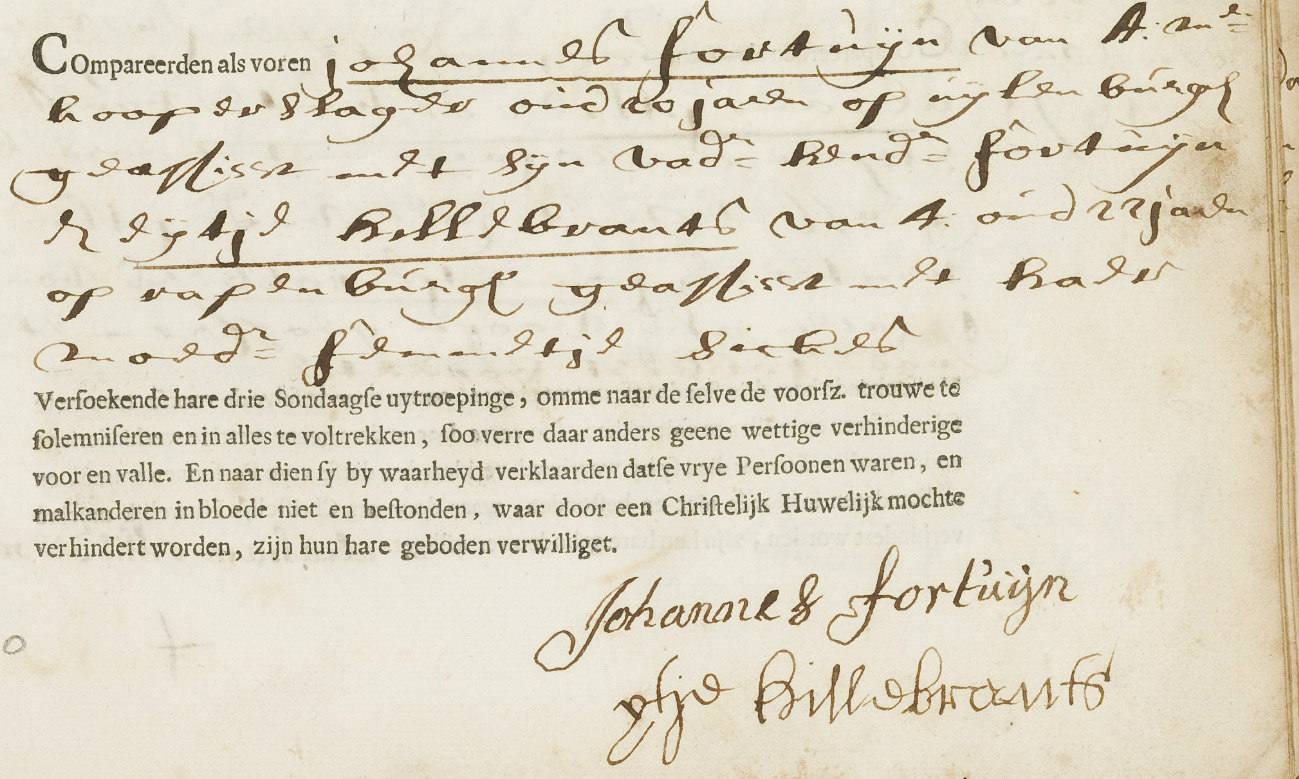 COmpareerden als voren johannes fortuijn van A. me
kooperslager oud 20 jaren op uijlenburgh
geassisst met sijn vadr hendr fortuijn
& eijtje hillebrants van A. oud 22 jaren
op rapenburgh geassisst met haer
moedr femmetje sickes
Verſoekende hare drie Sondaagſe uytroepinge, omme naar de ſelve de voorſz. trouwe te
ſolemniſeren en in alles te voltrekken, ſoo verre daar anders geene wettige verhinderige
voor en valle. En naar dien ſy by waarheyd verklaarden datſe vrye Perſoonen waren, en
malkanderen in bloede niet en beſtonden, waar door een Chriſtelijk Huwelijk mochte
verhindert worden, zijn hun hare geboden verwilliget.
Johannes fortuijn
ytje hillebrants